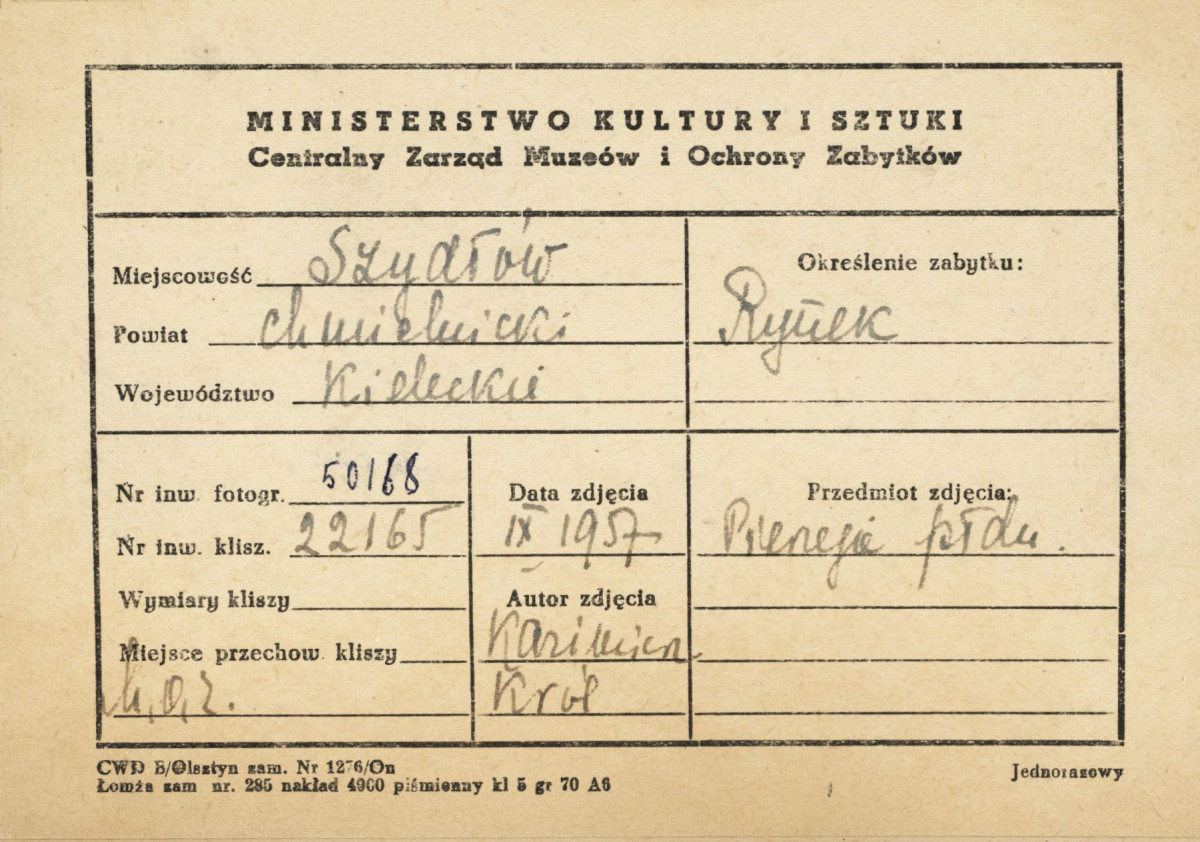 MINISTERSTWO KULTURY I SZTUKI
Centralny Zarząd Muzeów i Ochrony Zabytków
Miejscowość Szydłów
Powiat chmielnicki
Województwo Kieleckie
Określenie zabytku:
Rynek
Nr inw. fotogr. 50168
Nr inw. klisz. 22165
Wymiary kliszy
Miejsce przechow. kliszy
M.O.Z.
Data zdjęcia
IX 1957
Autor zdjęcia
Kazimierz
Król
Przedmiot zdjęcia:
Pierzeja płdn.
CWD B/Olsztyn zam. Nr 1276/On
Łomża zam nr. 285 nakład 4900 piśmienny kl 5 gr 70 A6
Jednorazowy